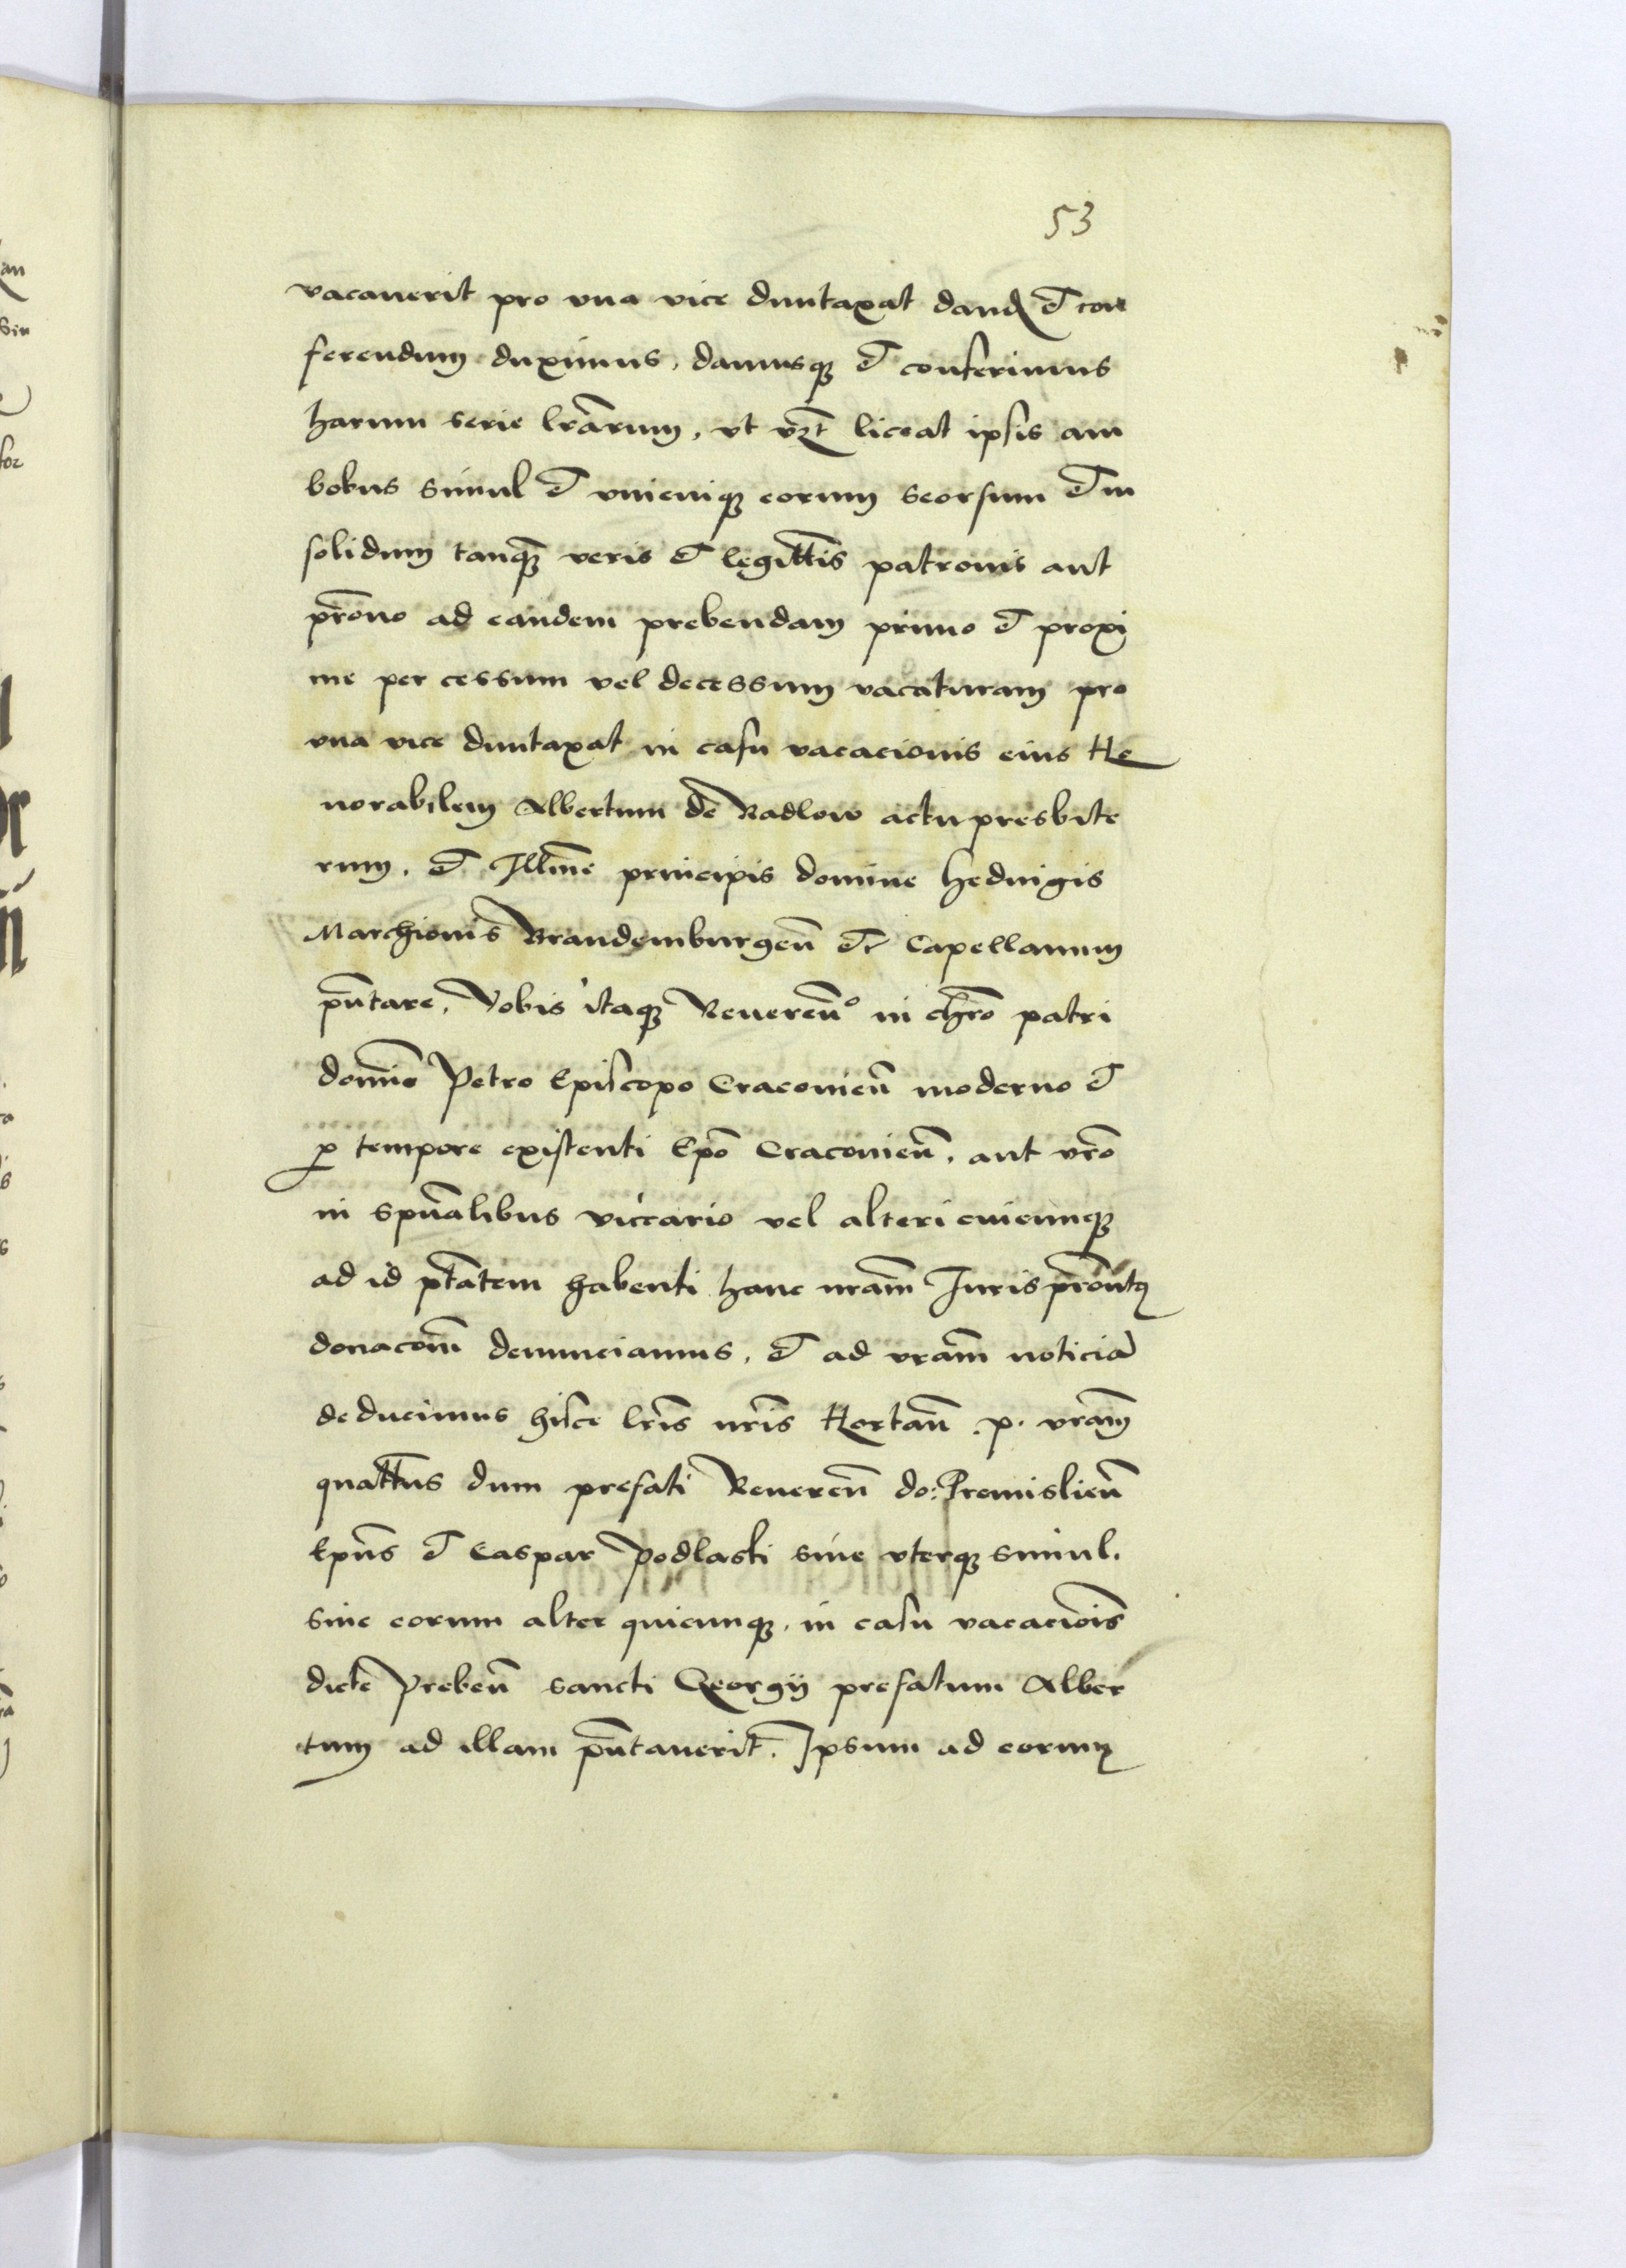 53
vacauerit pro vna vice duntaxat dand et con
ferendum duximus, damusq et conferimus
harum serie lrarum, vt vzt liceat ipsis am
bobus simul et vnicuiq eorum seorsum et in
solidum tanq veris et legittis patronis aut
prono ad eandem prebendam primo et proxi
me per cessum vel decessum vacaturam pro
vna vice duntaxat in casu vacacionis eius Ho
norabilem Albertum de Radlow actu presbite
rum, et Illme principis domine Hedwigis
Marchionis Brandemburgen etc Capellanum
pntare, Vobis itaq Reueren° in chro patri
domino Petro Episcopo Cracouien moderno et
p tempore existenti Epo Cracouien, aut vro
in spualibus viccario vel alteri cuicunq
ad id ptatem habenti hanc nram Juris pronatq
donacom denunciamus, et ad vram noticia
deducimus hisce lris nris Hortan .p. vram
quattus dum prefati Reueren do: Premislien
Epus et Caspar Podlaski siue vterq simul,
siue eorum alter quicunq, in casu vacaciois
dicte Preben sancti Georgij prefatum Alber
tum ad illam pntauerit, Ipsum ad eorum